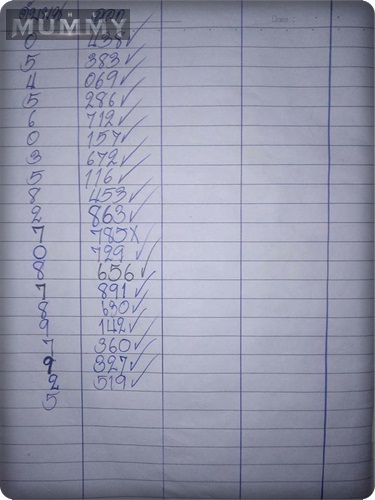 MUMMY
0 438✓
5 383✓
4 069✓
5 286✓
6 712✓
0 157✓
3 672✓
5 116✓
8 453✓
2 863✓
7 785X
0 729✓
8 656✓
1 891✓
8 630✓
9 142✓
1 360✓
9 327✓
2 519✓
5